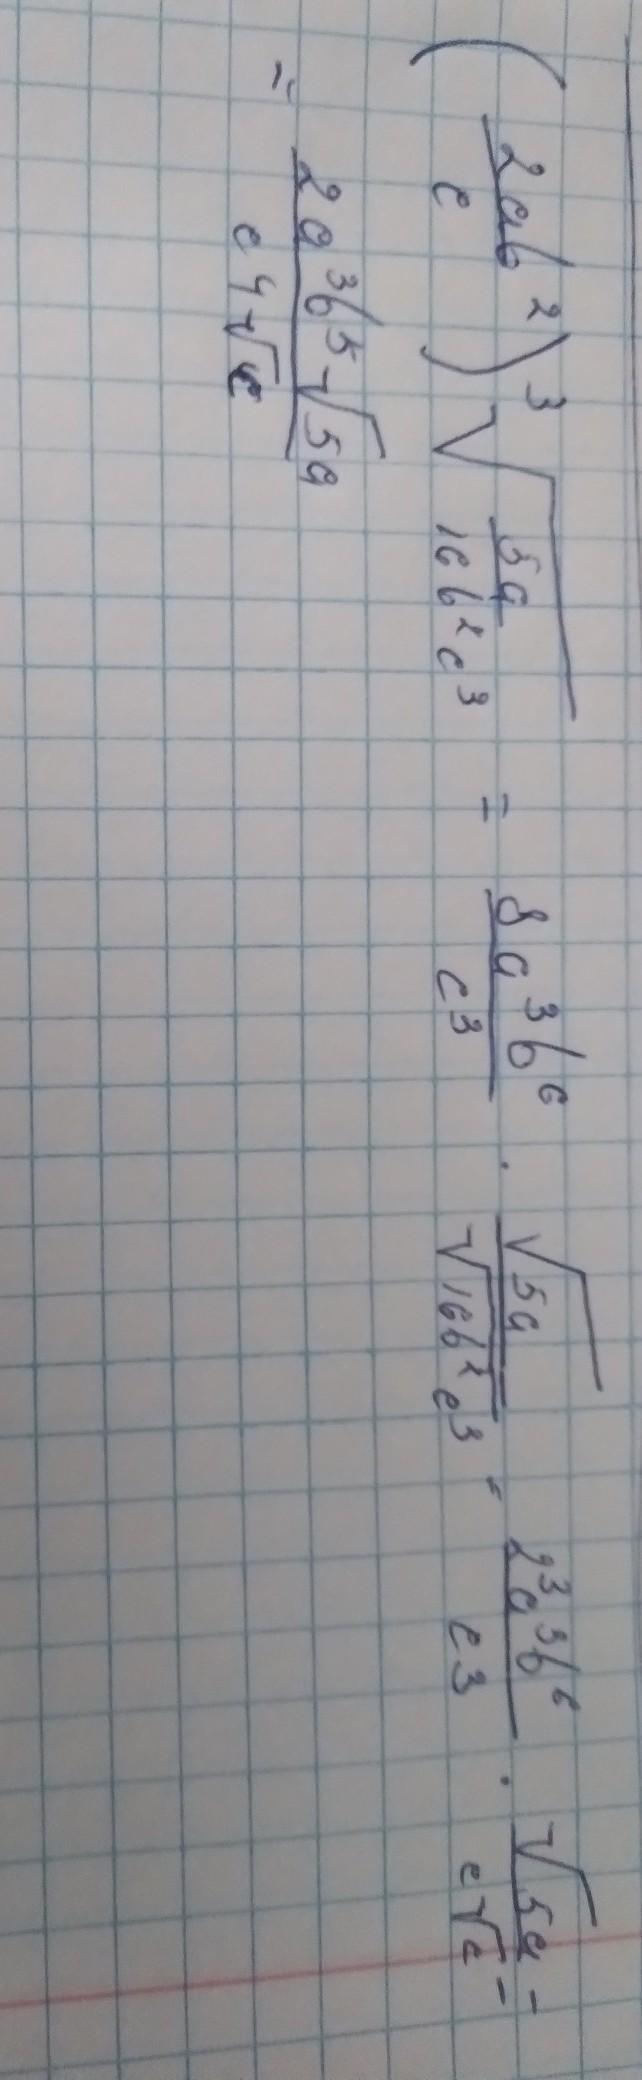 (2ab²/c)³ √(5a/16b²c³) = 8a³b⁶/c³ · √5a/√16b²c³ = 2³a³b⁶/c³ · √5a/c√c =
= 2a³b⁵√5a/c⁴√c